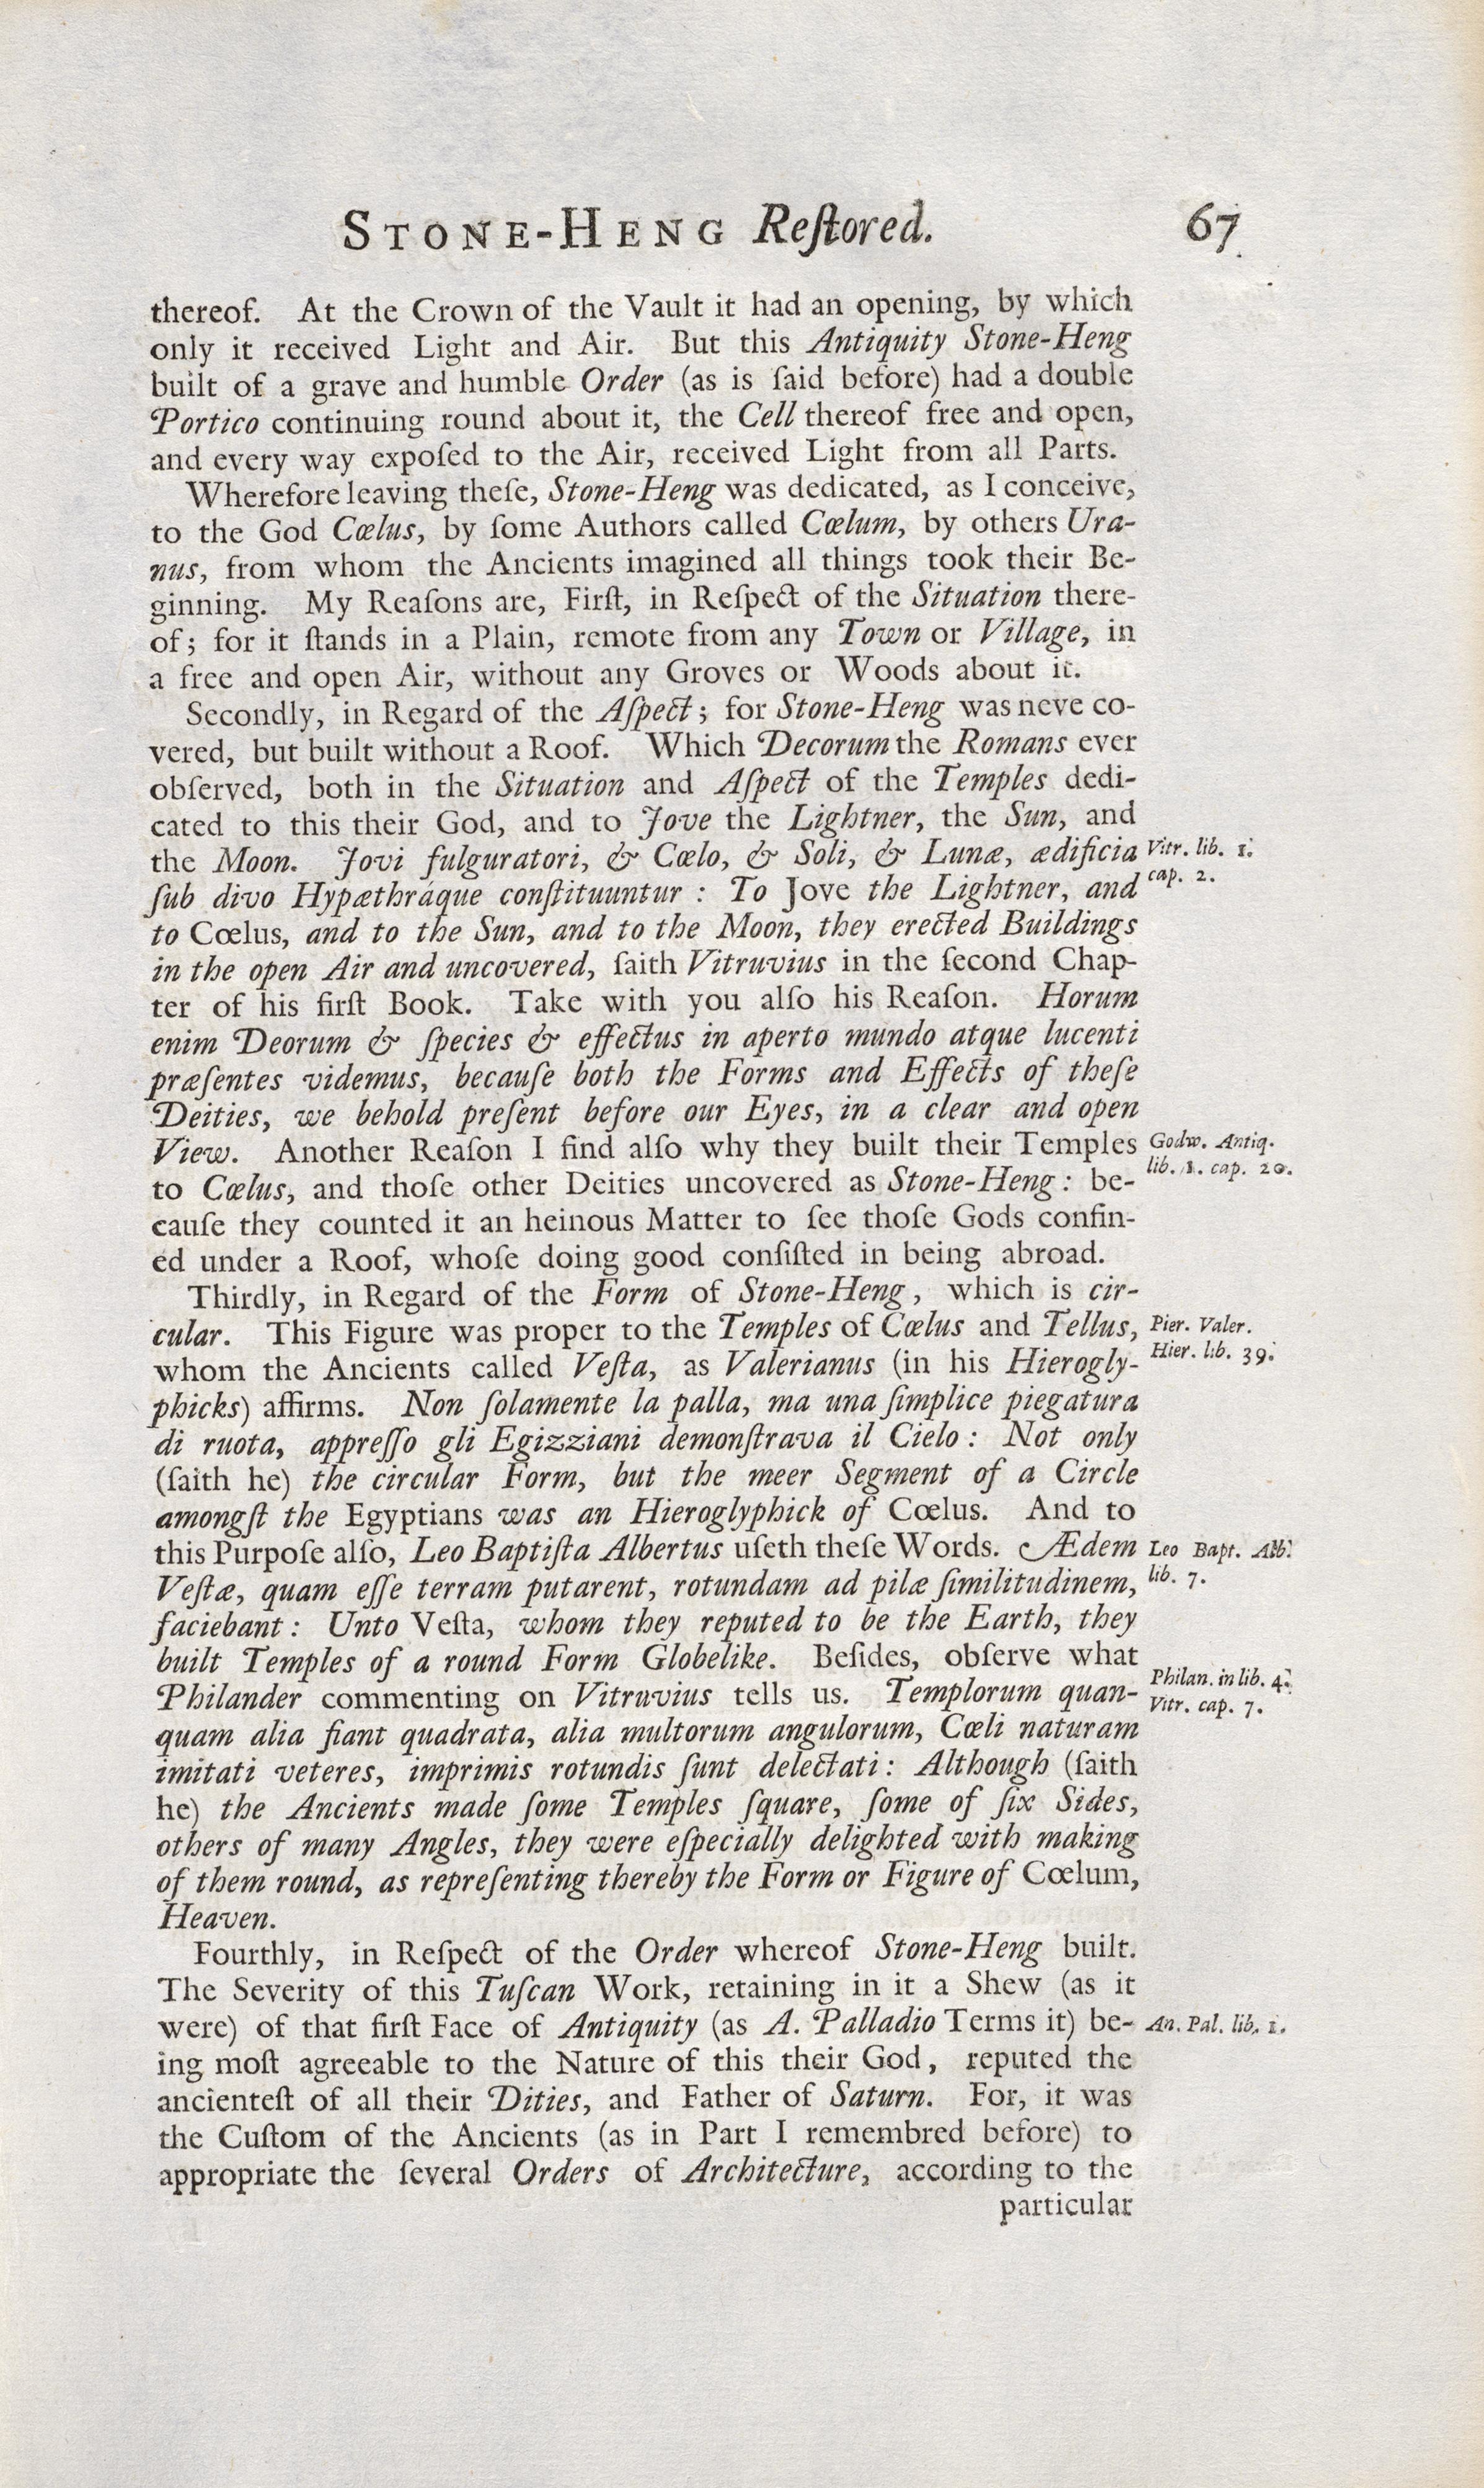 STONE-HENG Reſtored. 67
thereof. At the Crown of the Vault it had an opening, by which
only it received Light and Air. But this Antiquity Stone-Heng
built of a grave and humble Order (as is ſaid before) had a double
Portico continuing round about it, the Cell thereof free and open,
and every way expoſed to the Air, received Light from all Parts.
Wherefore leaving theſe, Stone-Heng was dedicated, as I conceive,
to the God Cœlus, by ſome Authors called Cœlum, by others Ura-
nus, from whom the Ancients imagined all things took their Be-
ginning. My Reaſons are, Firſt, in Reſpect of the Situation there-
of; for it ſtands in a Plain, remote from any Town or Village, in
a free and open Air, without any Groves or Woods about it.
Secondly, in Regard of the Aſpect; for Stone-Heng was neve co-
vered, but built without a Roof. Which Decorum the Romans ever
obſerved, both in the Situation and Aſpect of the Temples dedi-
cated to this their God, and to Jove the Lightner, the Sun, and
the Moon. Jovi fulguratori, & Cœlo, & Soli, & Lunæ, ædificia
Vitr. lib. 1.
ſub divo Hypæthráque conſtituuntur : To Jove the Lightner, and
cap. 2.
to Cœlus, and to the Sun, and to the Moon, they erected Buildings
in the open Air and uncovered, ſaith Vitruvius in the ſecond Chap-
ter of his firſt Book. Take with you alſo his Reaſon. Horum
enim Deorum & ſpecies & effectus in aperto mundo atque lucenti
præſentes videmus, becauſe both the Forms and Effects of theſe
Deities, we behold preſent before our Eyes, in a clear and open
View. Another Reaſon I find alſo why they built their Temples
Godw. Antiq.
to Cœlus, and thoſe other Deities uncovered as Stone-Heng: be-
lib. 1. cap. 20.
cauſe they counted it an heinous Matter to ſee thoſe Gods confin-
ed under a Roof, whoſe doing good conſiſted in being abroad.
Thirdly, in Regard of the Form of Stone-Heng, which is cir-
cular. This Figure was proper to the Temples of Cœlus and Tellus,
Pier. Valer.
whom the Ancients called Veſta, as Valerianus (in his Hierogly-
Hier. lib. 39.
phicks) affirms. Non ſolamente la palla, ma una ſimplice piegatura
di ruota, appreſſo gli Egizziani demonſtrava il Cielo: Not only
(ſaith he) the circular Form, but the meer Segment of a Circle
amongſt the Egyptians was an Hieroglyphick of Cœlus. And to
this Purpoſe alſo, Leo Baptiſta Albertus uſeth theſe Words. Ædem
Leo Bapt. Alb.
Veſtæ, quam eſſe terram putarent, rotundam ad pilæ ſimilitudinem,
lib. 7.
faciebant: Unto Veſta, whom they reputed to be the Earth, they
built Temples of a round Form Globelike. Beſides, obſerve what
Philander commenting on Vitruvius tells us. Templorum quan-
Philan. in lib. 4.
Vitr. cap. 7.
quam alia fiant quadrata, alia multorum angulorum, Cœli naturam
imitati veteres, imprimis rotundis ſunt delectati: Although (ſaith
he) the Ancients made ſome Temples ſquare, ſome of ſix Sides,
others of many Angles, they were eſpecially delighted with making
of them round, as repreſenting thereby the Form or Figure of Cœlum,
Heaven.
Fourthly, in Reſpect of the Order whereof Stone-Heng built.
The Severity of this Tuſcan Work, retaining in it a Shew (as it
were) of that firſt Face of Antiquity (as A. Palladio Terms it) be-
An. Pal. lib. 1.
ing moſt agreeable to the Nature of this their God, reputed the
ancienteſt of all their Dities, and Father of Saturn. For, it was
the Cuſtom of the Ancients (as in Part I remembred before) to
appropriate the ſeveral Orders of Architecture, according to the
particular